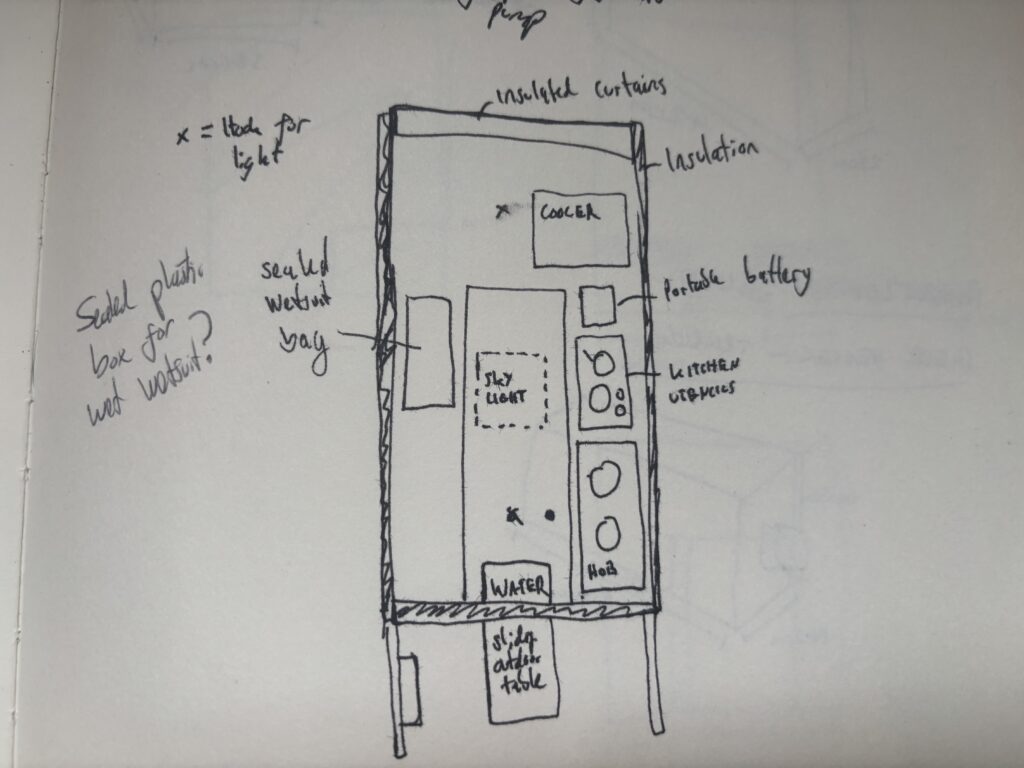 pump
insulated curtains
x = Hook for
light
Insulation
x
COOLER
sealed
wetsuit
bag
Portable battery
Sealed plastic
box for
wet wetsuit?
SKY
LIGHT
KITCHEN
UTENCILS
x
HOB
WATER
sliding
outdoor
table